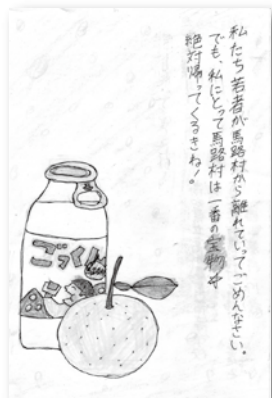 私たち若者が馬路村から離れていって、ごめんなさい。
でも、私にとって馬路村は一番の宝物や
絶対帰ってくるきね!。
ごっくん